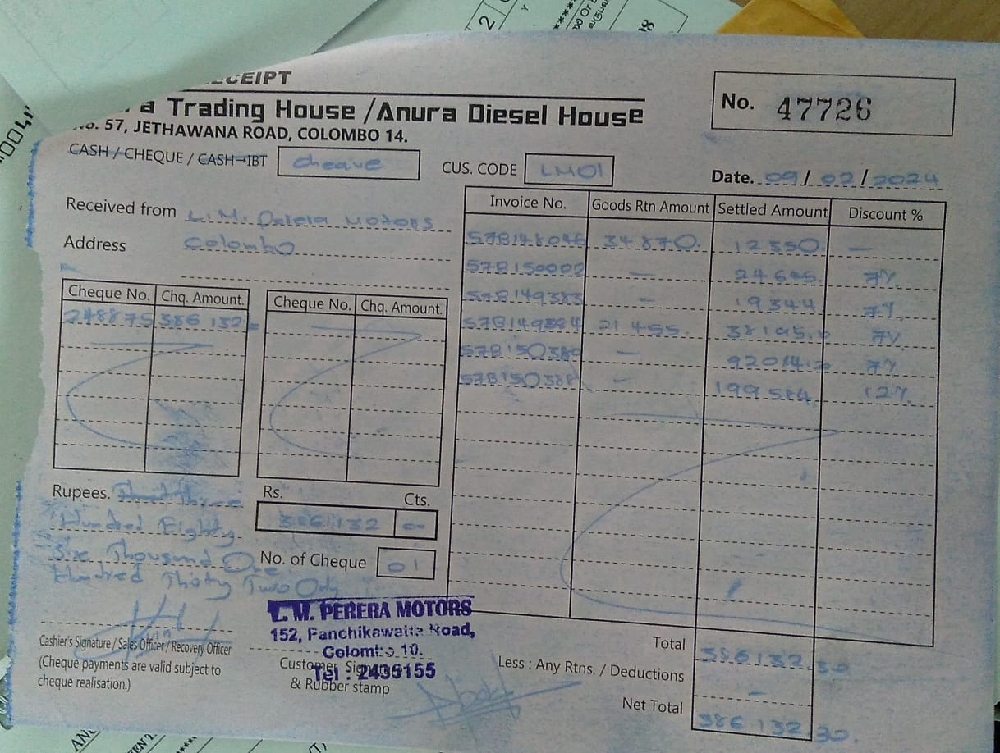 RECEIPT
a Trading House /Anura Diesel House
No. 57, JETHAWANA ROAD, COLOMBO 14.
No. 47726
CASH / CHEQUE / CASH-IBT cheque
CUS. CODE LM01
Date. 09/02/2024
Received from L.M. Perera Motors
Address Colombo
Cheque No. Chq. Amount.
248875 386 132
Cheque No. Chq. Amount.
Invoice No. Goods Rtn Amount Settled Amount Discount %
34870. 12350. —
578150002 — 7%
578149383 — 19344 7%
21455. 38195. 7%
— 7%
— 199584. 12%
Rupees. Three
Hundred Eighty
Six Thousand One
Hundred Thirty Two Only
Rs. Cts.
386132
No. of Cheque 01
L.M. PERERA MOTORS
152, Panchikawatta Road,
Colombo 10.
Tel : 2435155
Cashier's Signature / Sales Officer / Recovery Officer
(Cheque payments are valid subject to
cheque realisation.)
Customer Signature
& Rubber stamp
Total 386132.30
Less : Any Rtns / Deductions —
Net Total 386 132.30.